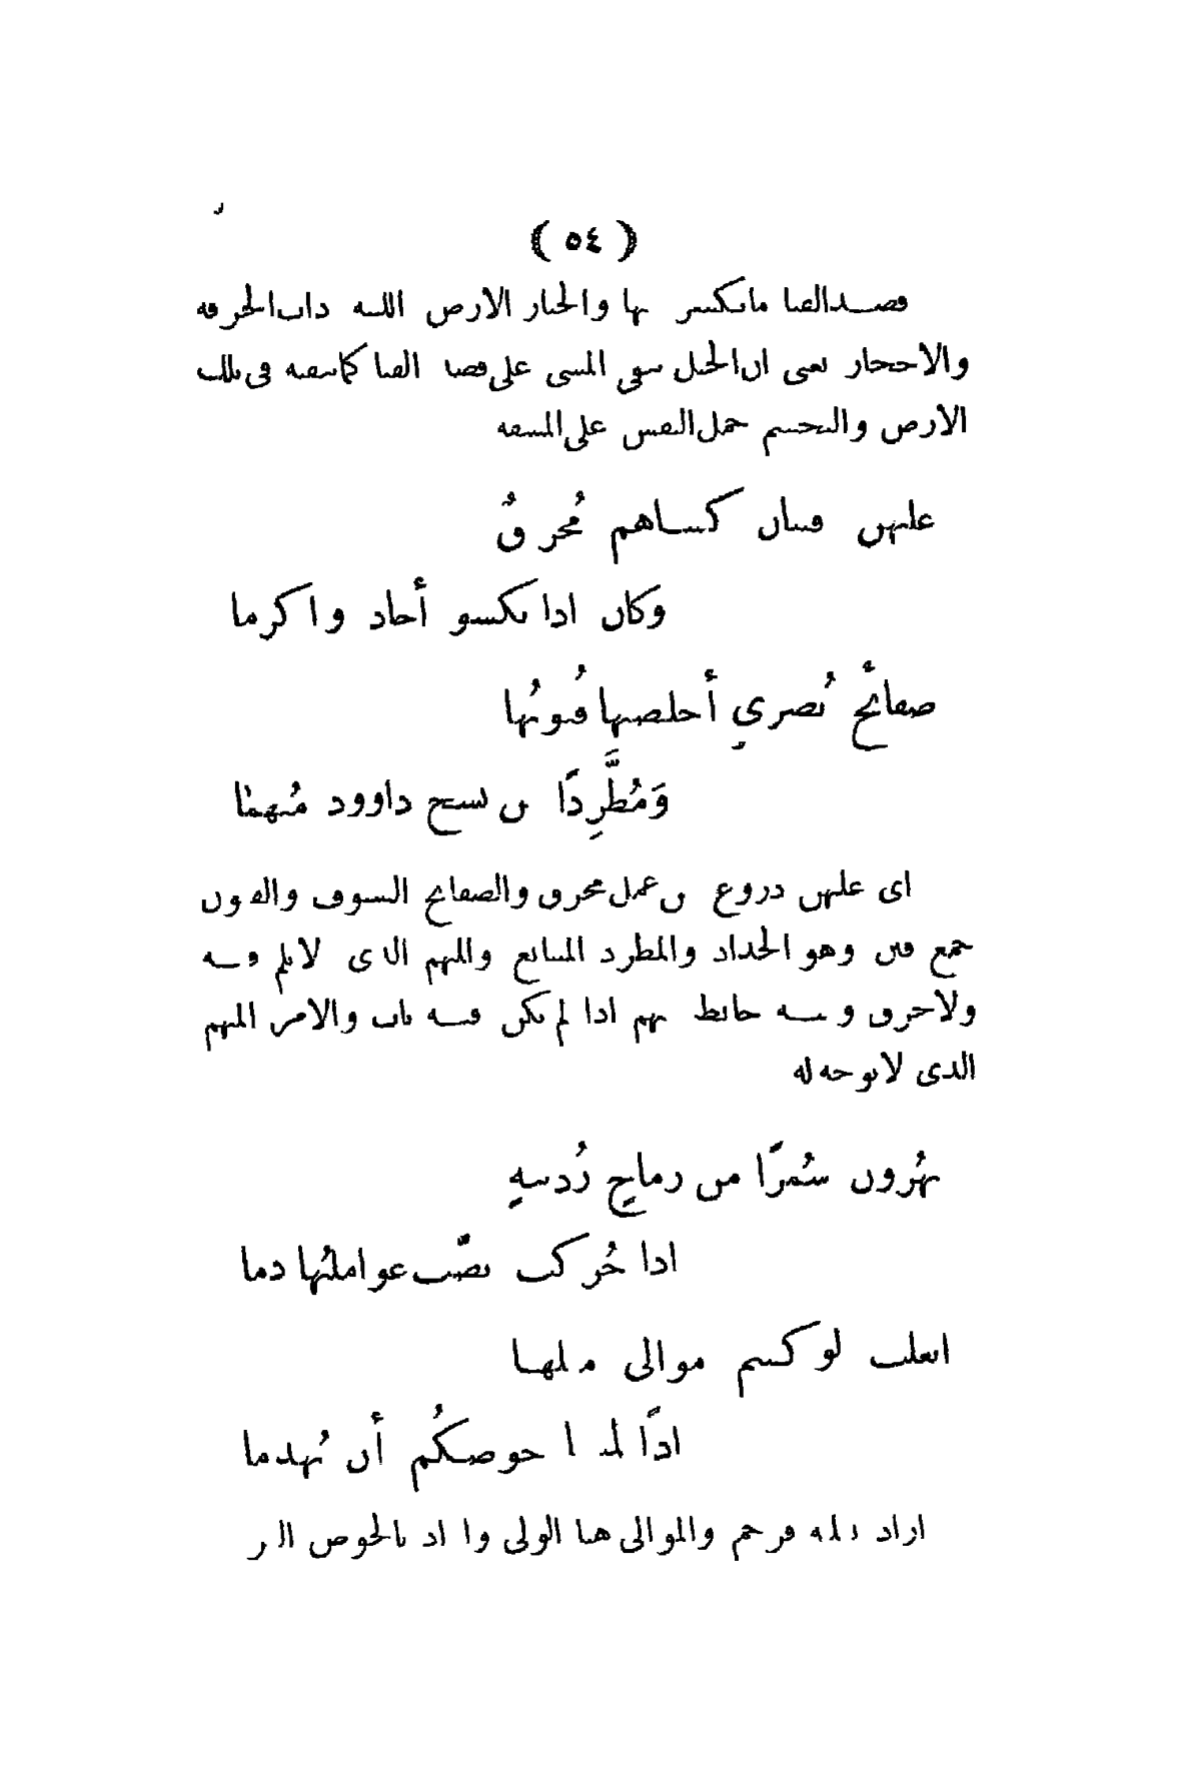 ( ٥٤ )
قصد القنا ما تكسر بها والخبار الارض اللينة ذات الجحرفة
والاحجار يعنى ان الخيل تبقى المشى على قصد القنا كما تبقيه فى تلك
الارض والتجشم حمل النفس على المشقة
عليهن فتيان كساهم مُحرقٌ
وكان اذا يكسو أجاد واكرما
صفائحُ بُصرىٍ أخلصتها قُيونُها
وَمُطَّرِدًا من نسج داوود مُبهمًا
اى عليهن دروع من عمل محرق والصفايح السيوف والقيون
جمع قين وهو الحداد والمطرد المتتابع والمبهم الذى لا ثلم فيه
ولا خرق فيه وحائط مبهم اذا لم يكن فيه باب والامر المبهم
الذى لا توجه له
يهُزون سُمرًا من رماح رُدينةٍ
اذا حُركت بضّت عواملُها دما
اثعلب لو كنتم موالى مثلها
اذًا لمنعنا حوضكُم أن يُهدما
اراد ثعلبة فرخم والموالى هنا الولى واراد بالحوض